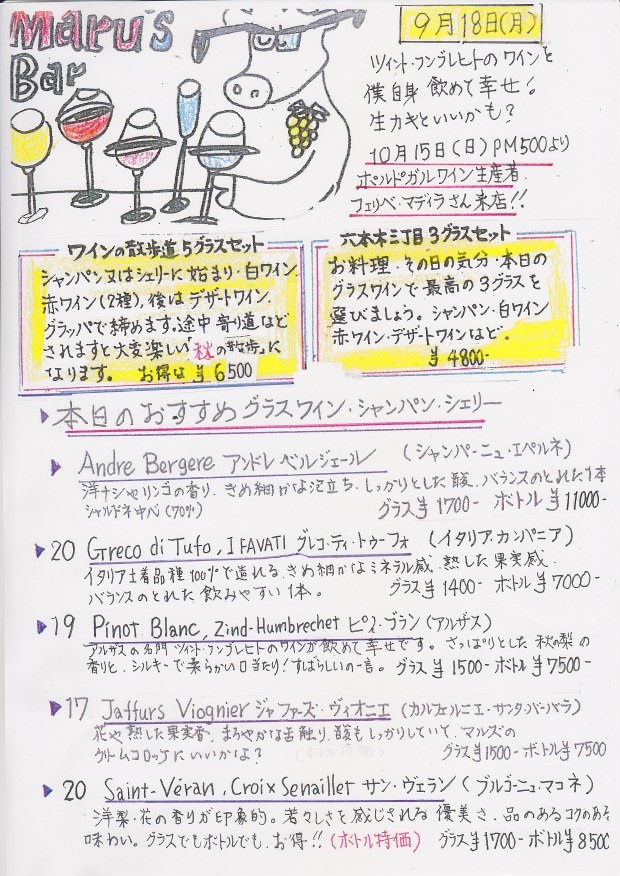 Maru's
Bar
9月18日(月)
ツィント・フンブレヒトのワインと
僕自身 飲めて幸せ!
生カキといいかも?
10月15日(日)PM500より
ポルトガルワイン生産者
フェリペ・マディラさん来店!!
ワインの散歩道5グラスセット
シャンパン又はシェリーに始まり・白ワイン、
赤ワイン(2種)、後はデザートワイン、
グラッパで締めます。途中寄り道など
されますと大変楽しい「秋の散歩」に
なります。 お得な ¥6500
六本木三丁目3グラスセット
お料理・その日の気分・本日の
グラスワインで最高の3グラスを
選びましょう。シャンパン・白ワイン
赤ワイン・デザートワインなど。
¥4800-
本日のおすすめグラスワイン・シャンパン・シェリー
Andre Bergere アンドレ ベルジェール (シャンパーニュ・エペルネ)
洋ナシやリンゴの香り、きめ細かな泡立ち、しっかりとした酸、バランスのとれた1本
シャルドネ中心(70%) グラス¥1700- ボトル¥11000-
20 Greco di Tufo, I FAVATI グレコ・ティ・トゥーフォ (イタリア・カンパニア)
イタリア土着品種100%で造れる、きめ細かなミネラル感、熟した果実感、
バランスのとれた飲みやすい1本。 グラス¥1400- ボトル¥7000-
19 Pinot Blanc, Zind-Humbrechet ピノ・ブラン(アルザス)
アルザスの名門 ツィント・フンブレヒトのワインが飲めて幸せです。さっぱりとした秋の梨の
香りと、シルキーで柔らかい口当たり!すばらしいの一言。グラス¥1500-ボトル¥7500-
17 Jaffurs Viognier ジャファーズ・ヴィオニエ (カルフォルニーエ・サンタ・バーバラ)
花や熟した果実香、まろやかな舌触り、酸もしっかりしていて、マルズの
クリームコロッケにいいかな? グラス¥1500-ボトル¥7500
20 Saint-Véran, Croix Senaillet サン・ヴェラン (ブルゴーニュ・マコネ)
洋梨・花の香りが印象的。若々しさを感じされる優美さ、品のあるコクのある
味わい。グラスでもボトルでも、お得!!(ボトル特価) グラス¥1700- ボトル¥8500